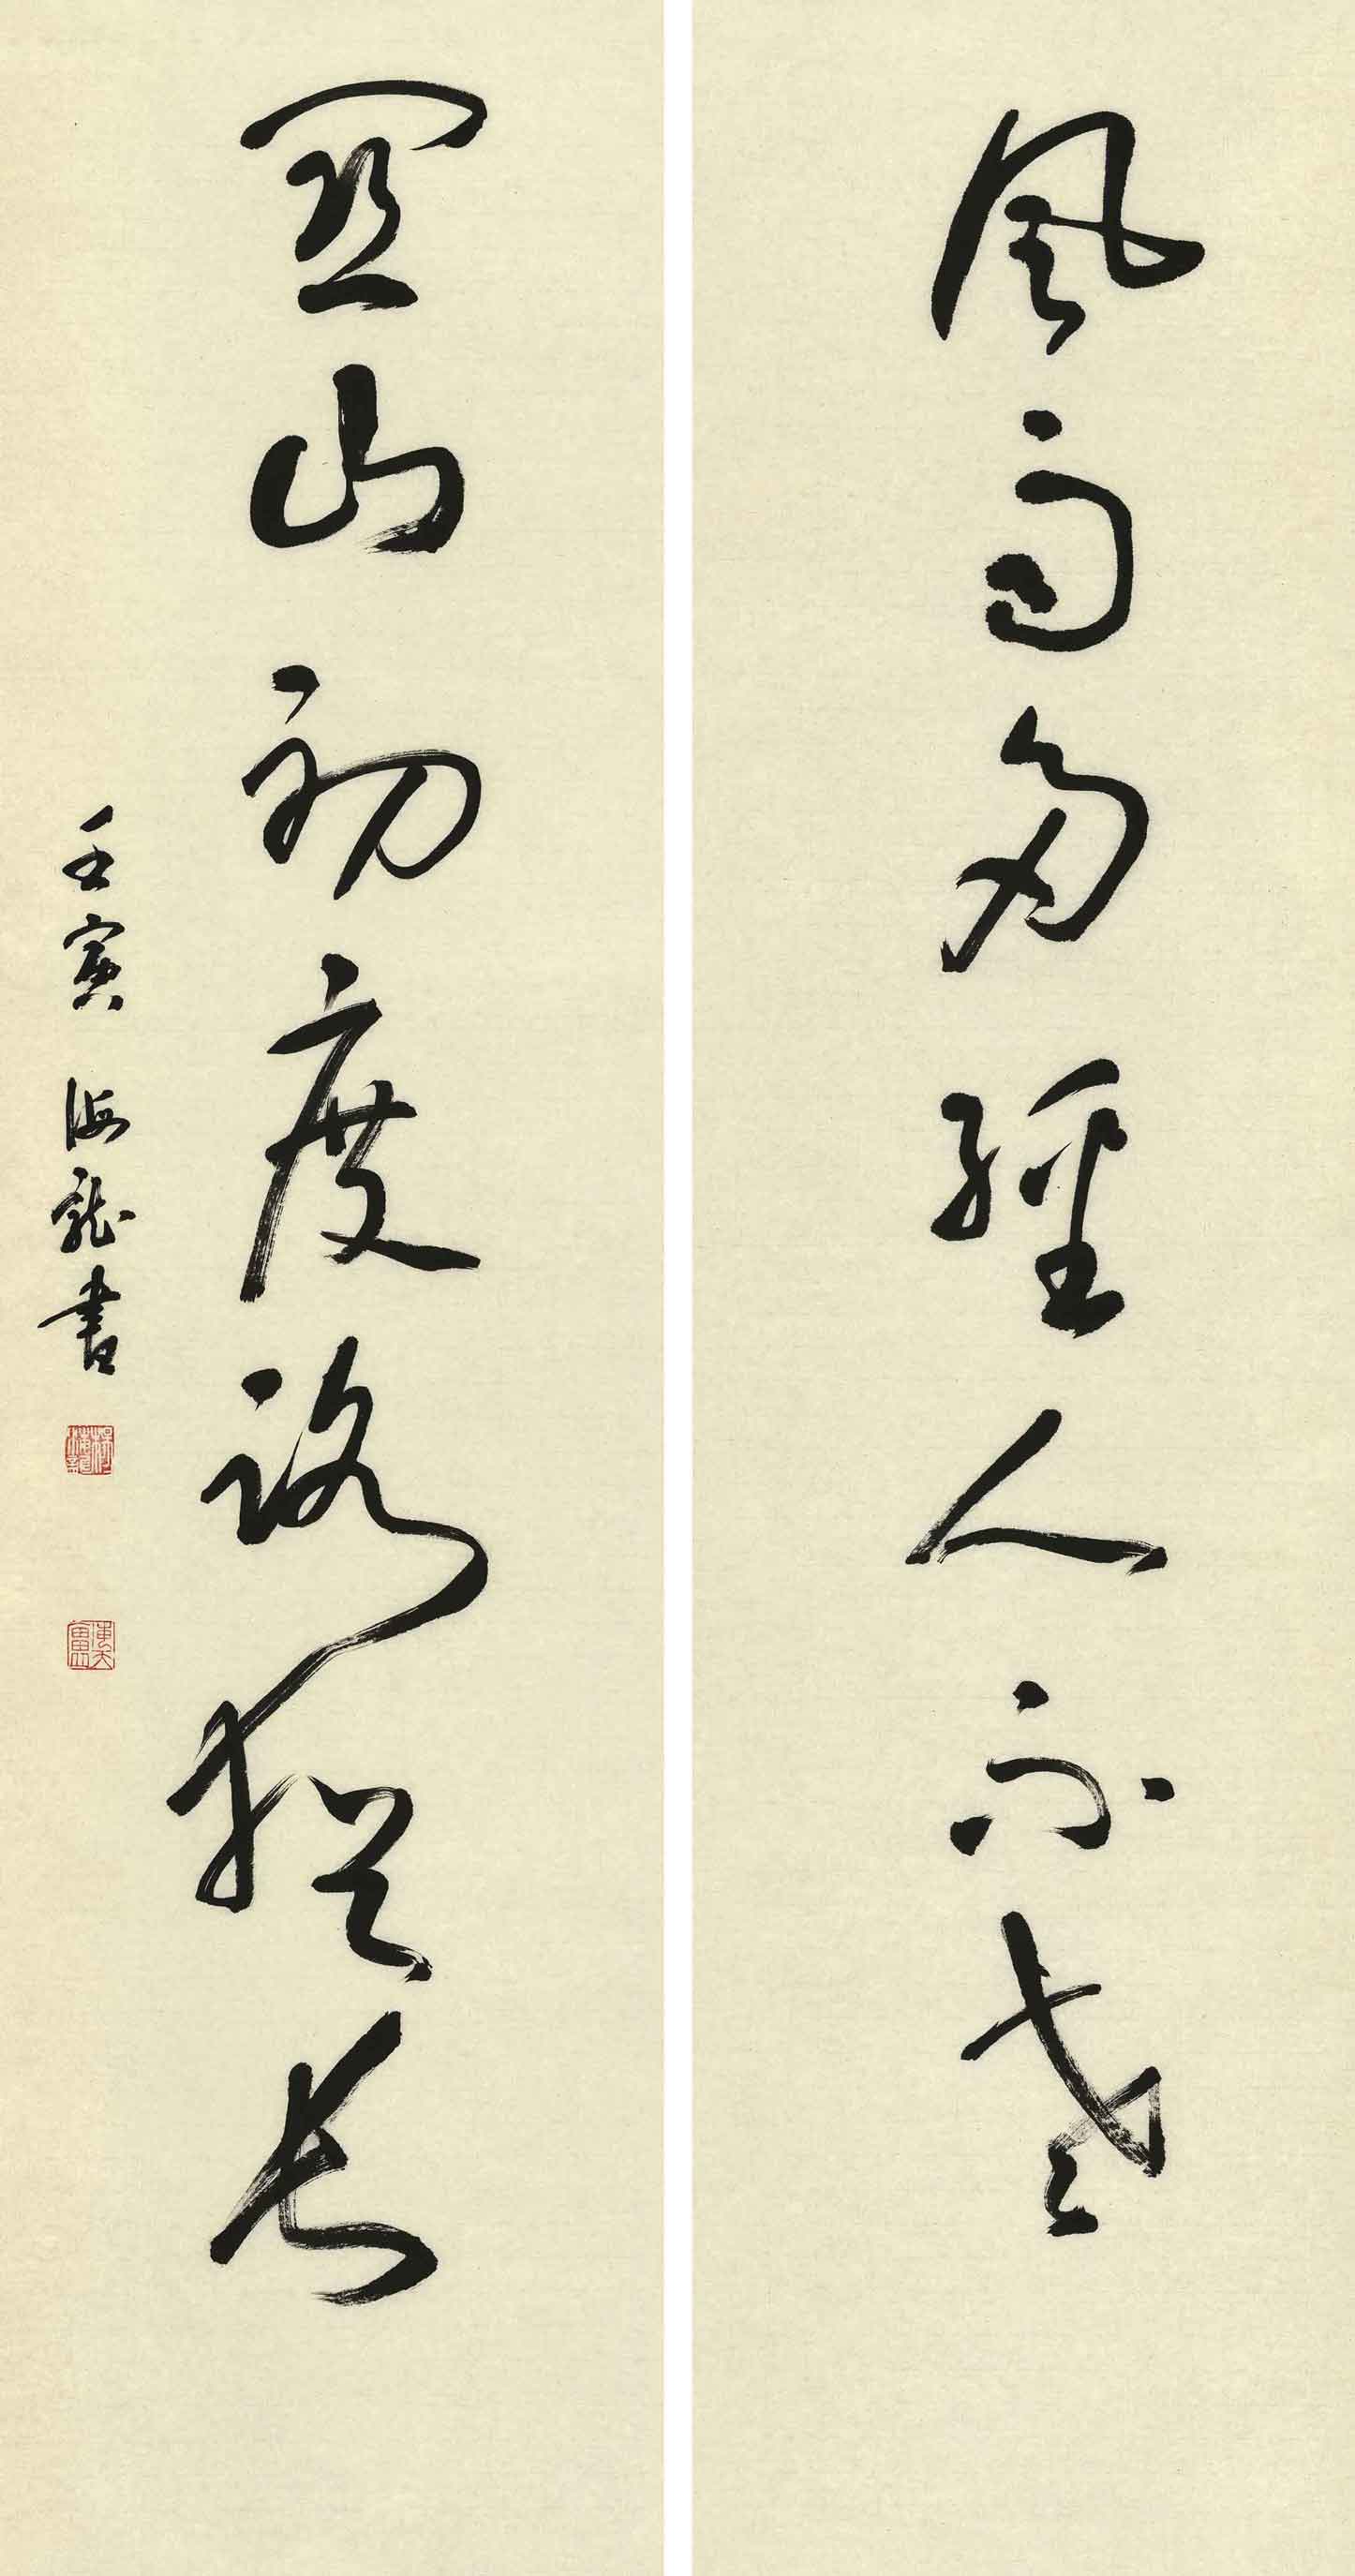 風雨多經人不老
關山初度路猶長
壬寅 海龍書